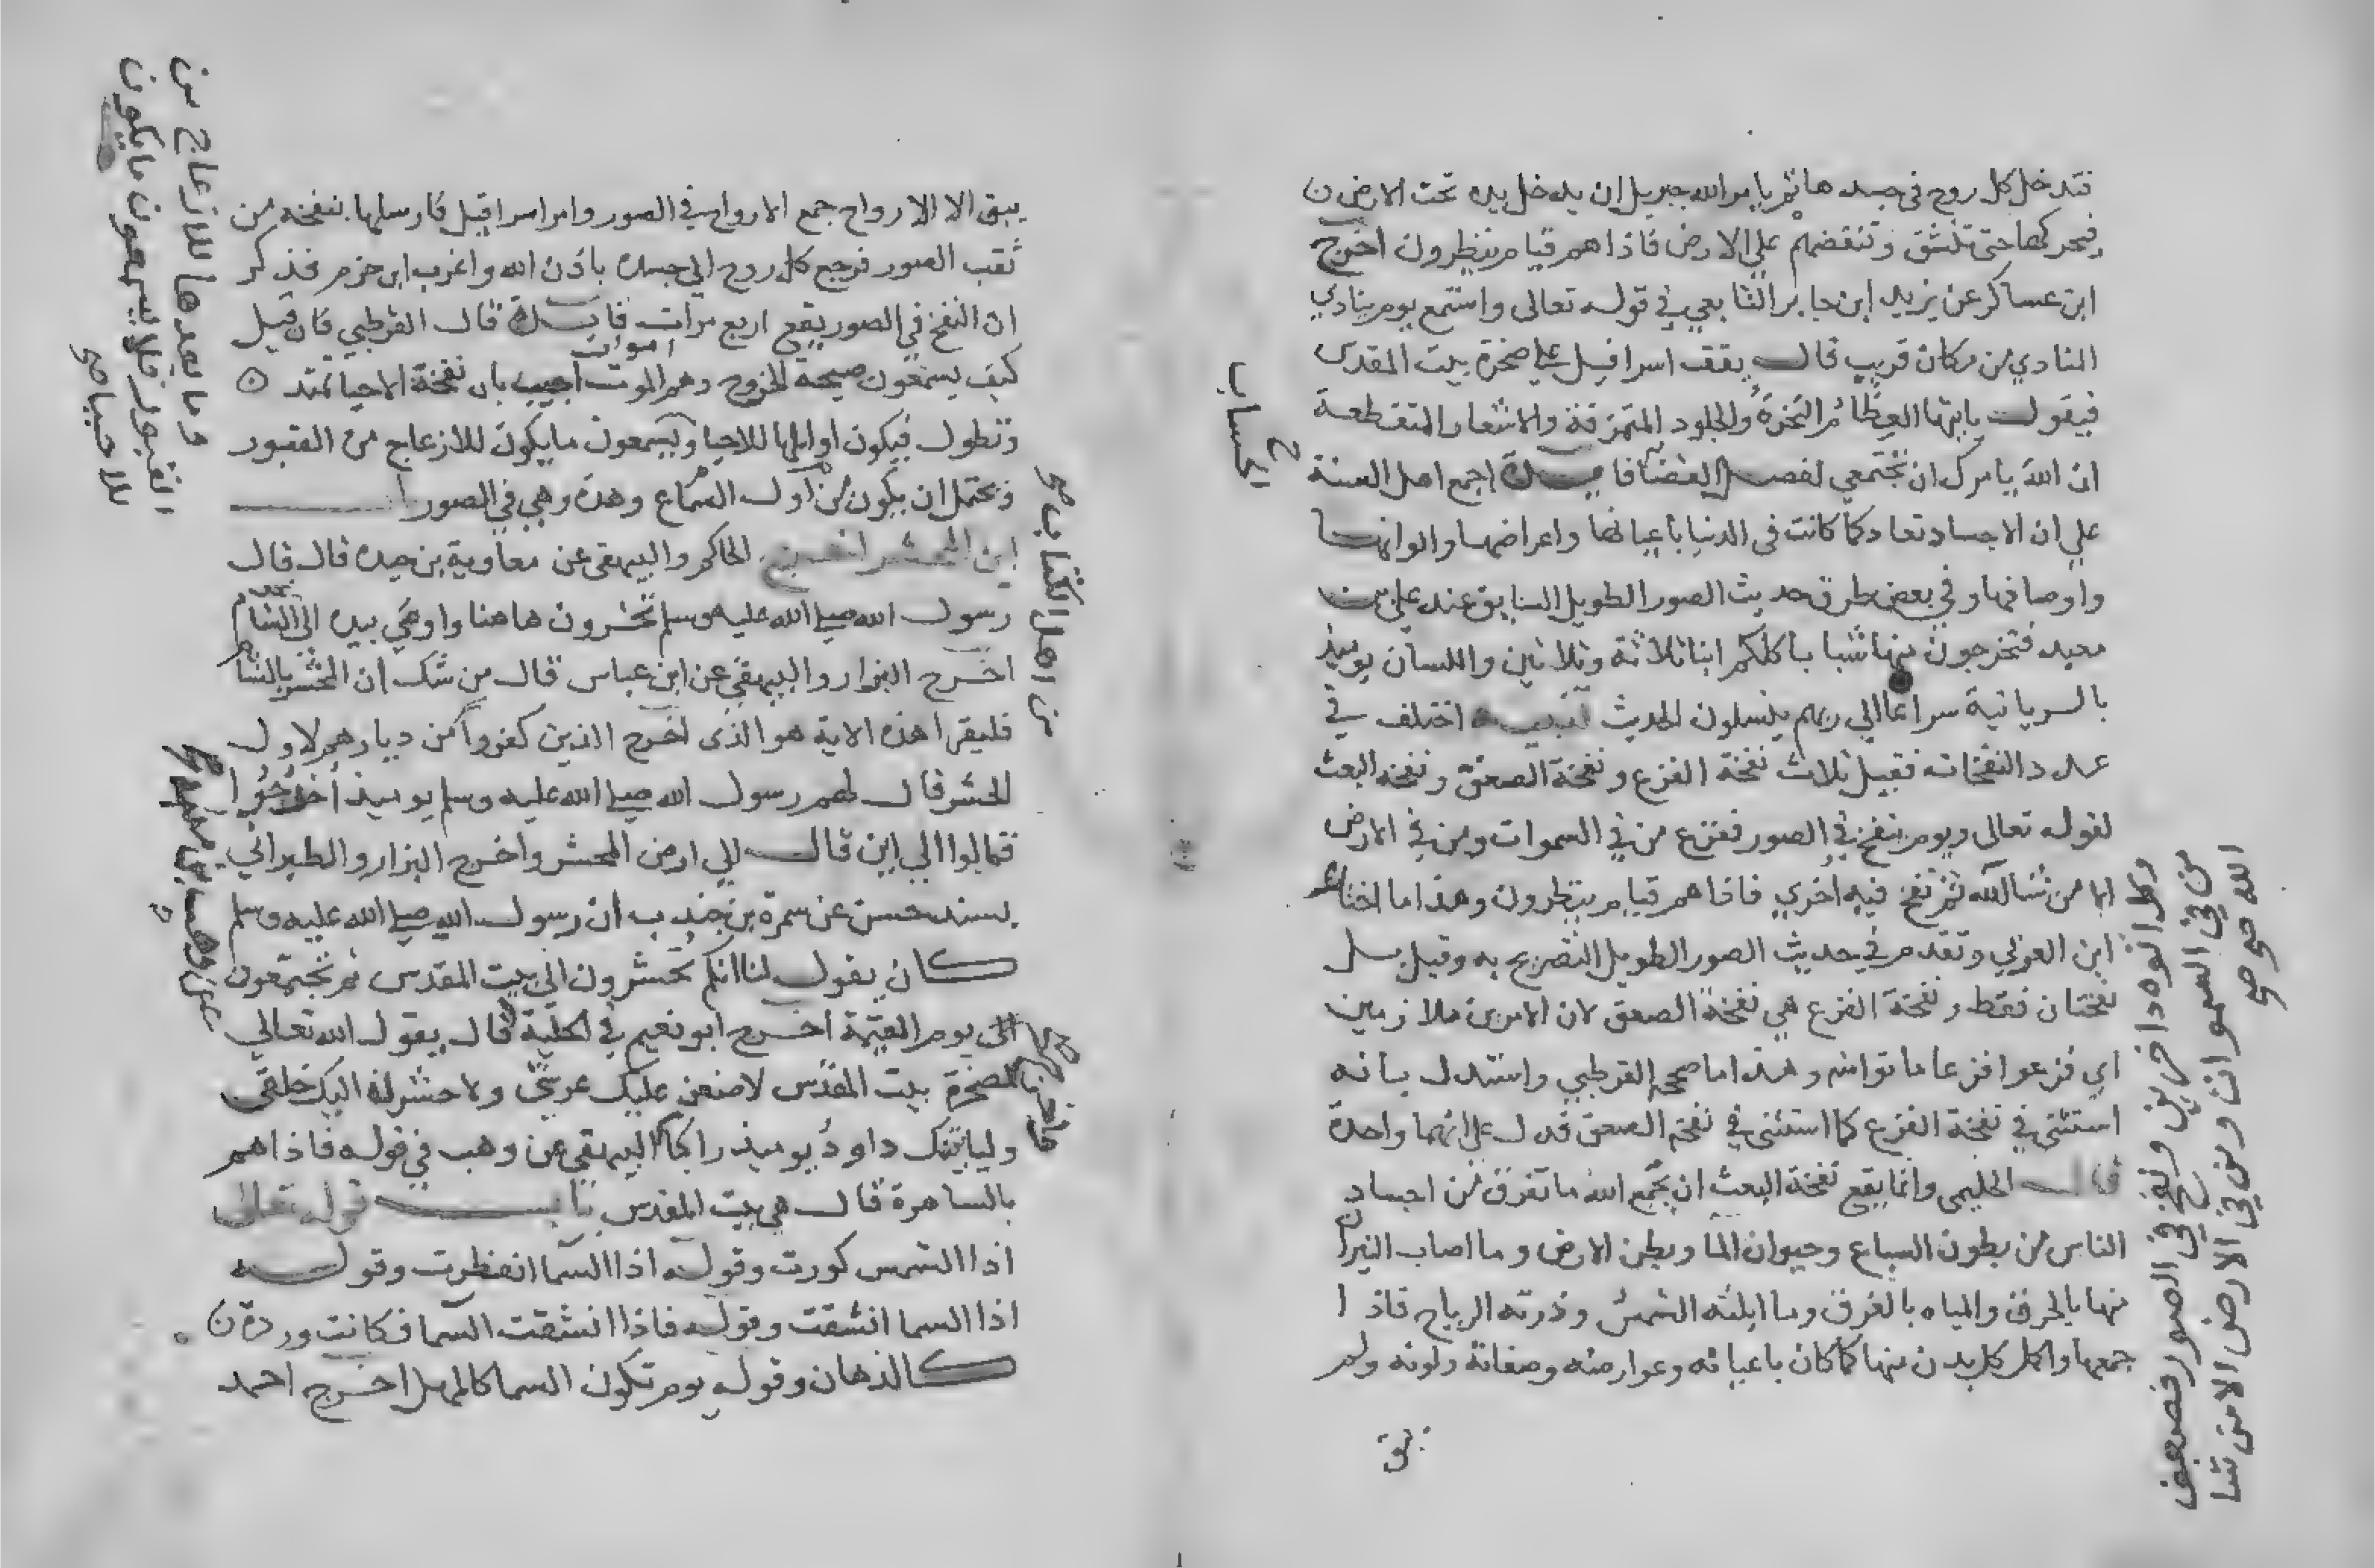 فتدخل كل روح في جسدها ثم يامر الله جبريل ان يدخل يده تحت الارض ن
فيحركها حتى تنشق وتنفضهم على الارض فاذا هم قيام ينظرون اخرج
ابن عساكر عن يزيد ابن جابر التابعي في قوله تعالى واستمع يوم ينادي
المنادي من مكان قريب قال يقف اسرافيل على صخرة بيت المقدس
فيقول يا ايتها العظام النخرة والجلود المتمزقة والاشعار المتقطعة
ان الله يامرك ان تجتمعي لفصل القضا فايدة اجمع اهل السنة
على ان الاجساد تعاد كما كانت في الدنيا باعيانها واعراضها والوانها
واوصافها وفي بعض طرق حديث الصور الطويل السابق عند علي بن
معبد فتخرجون منها شبابا كلكم ابنا ثلاثة وثلاثين واللسان يوميذ
بالسريانية سراعا الى ربهم ينسلون الحديث تنبيه اختلف في
عدد النفخات فقيل ثلاث نفخة الفزع ونفخة الصعق ونفخة البعث
لقوله تعالى ويوم ينفخ في الصور ففزع من في السموات ومن في الارض
الا من شا الله ثم نفخ فيه اخرى فاذا هم قيام ينظرون وهذا ما اختاره
ابن العربي وتقدم في حديث الصور الطويل التصريح به وقيل بل
نفختان فقط ونفخة الفزع هي نفخة الصعق لان الامرين متلازمين
اي فزعوا فزعا ماتوا منه وهذا ما صححه القرطبي واستدل بانه
استثنى في نفخة الفزع كما استثنى في نفخة الصعق فدل على انهما واحدة
قال الحليمي وانما يقع نفخة البعث ان يجمع الله ما تفرق من اجساد
الناس من بطون السباع وحيوان الما وبطن الارض وما اصاب النيران
منها بالحرق والمياه بالغرق وما ابلته الشمس وذرته الرياح فاذا
جمعها واكمل كل بدن منها كما كان باعيانه وعوارضه وصفاته ولونه ولم
يبق
الحساب
من في السموات ومن في الارض الا من شا
الله صح صح
يبق الا الارواح جمع الارواح في الصور وامر اسرافيل فارسلها بنفخة من
ثقب الصور فرجع كل روح الى جسده باذن الله واغرب ابن حزم فذكر
ان النفخ في الصور يقع اربع مرات فايدة قال القرطبي فان قيل
كيف يسمعون صيحة الخروج وهم اموات اجيب بان نفخة الاحيا تمتد
وتطول فيكون اوايلها للاحيا ويسمعون ما يكون للازعاج من القبور
ويحتمل ان يكون من اول السماع وهذه وهي في الصور
اين المحشر اخرج الحاكم والبيهقي عن معاوية بن حيدة قال قال
رسول الله صلى الله عليه وسلم تحشرون هاهنا واومى بيده الى الشام
اخرج البزار والبيهقي عن ابن عباس قال من شك ان المحشر بالشام
فليقرا هذه الاية هو الذي اخرج الذين كفروا من ديارهم لاول
الحشر قال لهم رسول الله صلى الله عليه وسلم يوميذ اخرجوا
فقالوا الى اين قال الى ارض المحشر واخرج البزار والطبراني
بسند حسن عن سمرة بن جندب ان رسول الله صلى الله عليه وسلم
كان يقول لنا انكم تحشرون الى بيت المقدس ثم تجتمعون
الى يوم القيمة اخرج ابو نعيم في الحلية قال يقول الله تعالى
لصخرة بيت المقدس لاضعن عليك عرشي ولاحشرن اليك خلقي
ولياتينك داود يوميذ راكبا البيهقي عن وهب في قوله فاذا هم
بالساهرة قال هي بيت المقدس باب قوله تعالى
اذا الشمس كورت وقوله اذا السما انفطرت وقوله
اذا السما انشقت وقوله فاذا انشقت السما فكانت وردة
كالدهان وقوله يوم تكون السما كالمهل اخرج احمد
من اهل الكتاب صح
وما بعدها للازعاج من
القبور فلا يسمعون ما يكون
للاحيا صح
عن وهب بن منبه